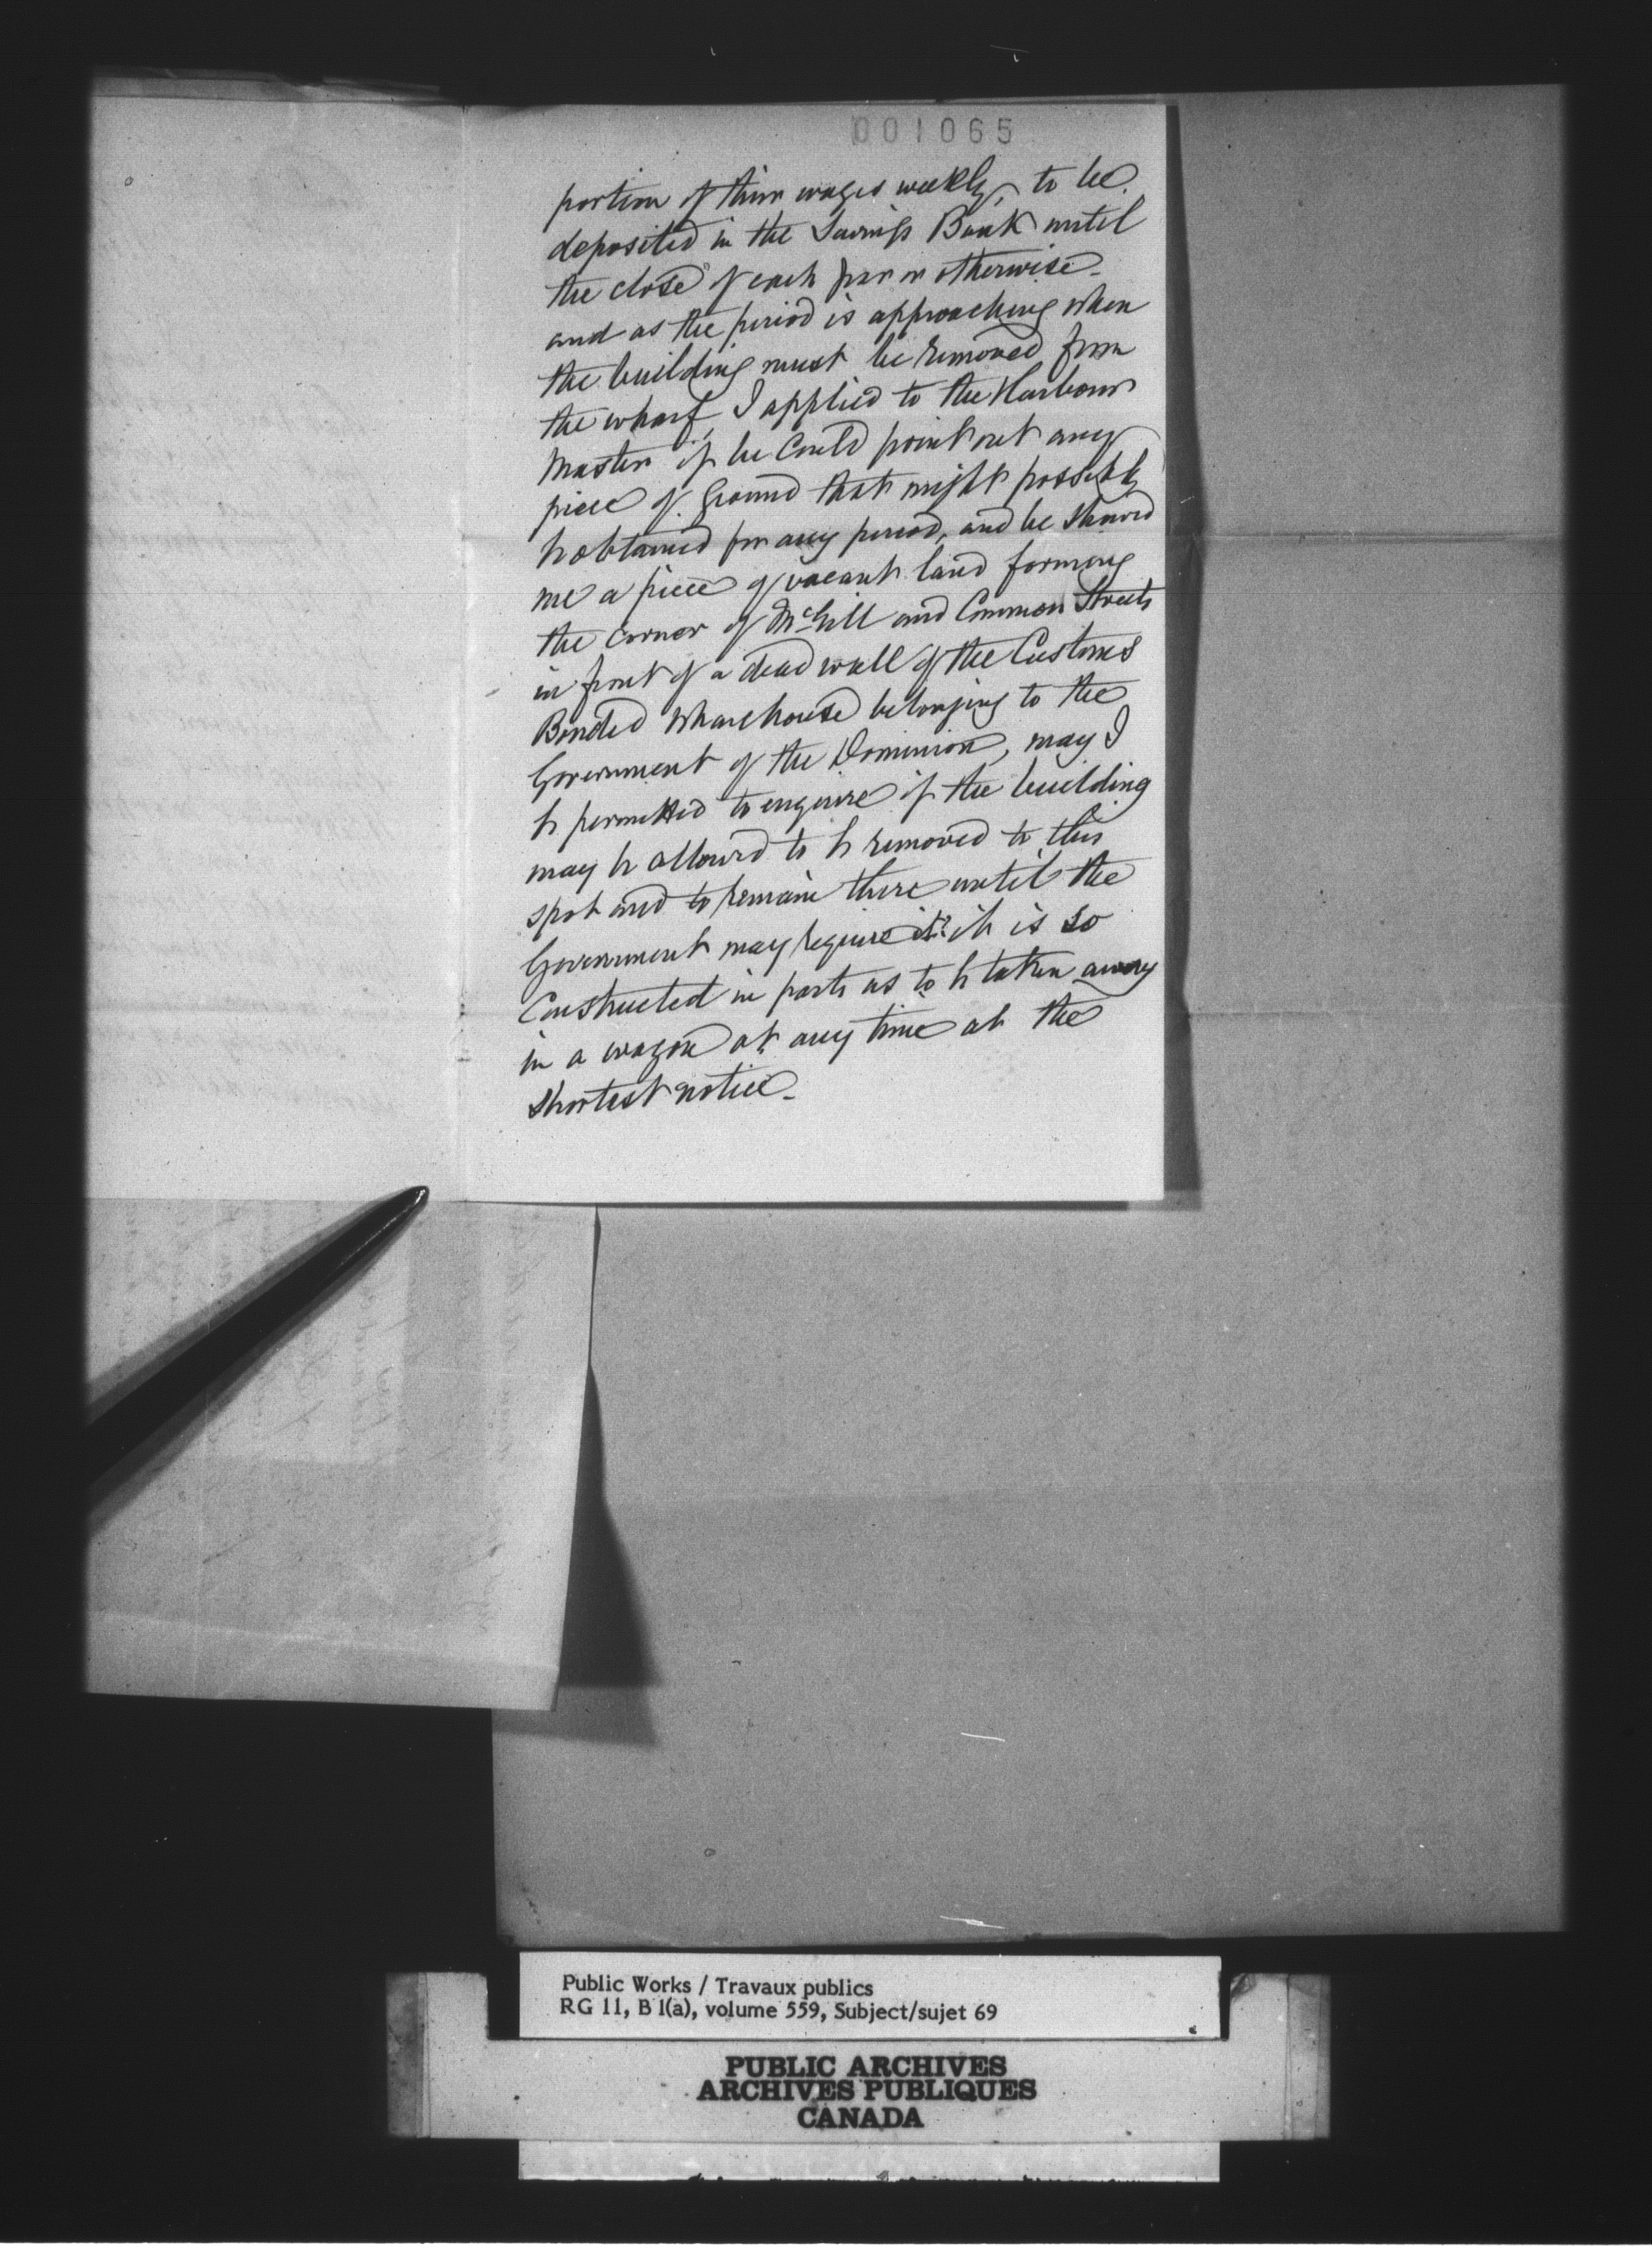 001065
portion of their wages weekly, to be
deposited in the Savings Bank until
the close of each year or otherwise -
and as the period is approaching when
the building must be removed from
the wharf, I applied to the Harbour
Master if he could point out any
piece of ground that might possibly
be obtained for any period, and he showed
me a piece of vacant land forming
the corner of McGill and Common Streets
in front of a dead wall of the Customs
Bonded Wharehouse belonging to the
Government of the Dominion, may I
be permitted to enquire if the building
may be allowed to be removed to this
spot and to remain there until the
Government may require it? it is so
Constructed in parts as to be taken away
in a wagon at any time at the
shortest notice -
Public Works / Travaux publics
RG 11, B 1(a), volume 559, Subject/sujet 69
PUBLIC ARCHIVES
ARCHIVES PUBLIQUES
CANADA